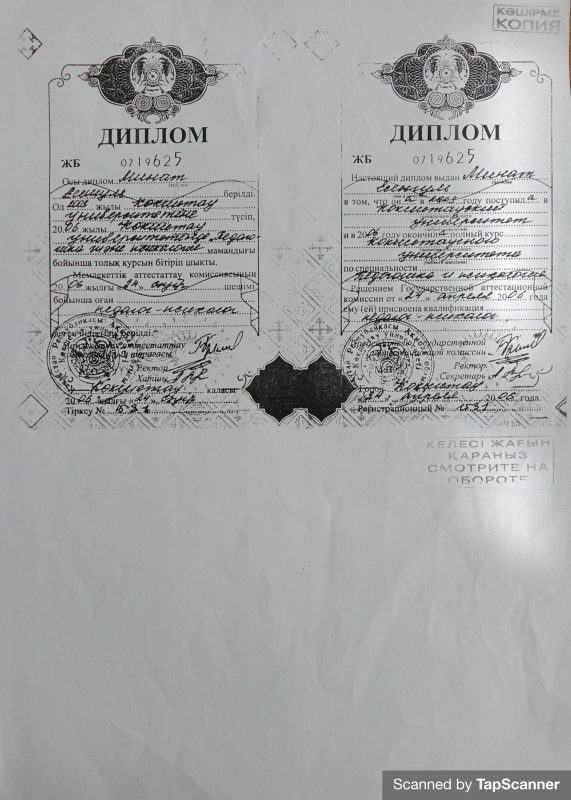 КӨШІРМЕ
КОПИЯ
ДИПЛОМ
ЖБ 0719625
Осы диплом Минат
Есенгуль берілді.
Ол жылы Көкшетау
университетіне түсіп,
2006 жылы Көкшетау
университетінің Педаго-
гика және психология мамандығы
бойынша толық курсын бітіріп шықты.
Мемлекеттік аттестаттау комиссиясының
2006 жылғы «24» сәуір шешімі
бойынша оған
педагог-психолог
біліктілігі берілді.
Мемлекеттік аттестаттау
комиссиясының төрағасы
Ректор
Хатшы
Көкшетау қаласы
2006 жылғы «24» сәуір
Тіркеу №
ДИПЛОМ
ЖБ 0719625
Настоящий диплом выдан Минат
Есенгуль
в том, что он а в 2003 году поступил а в
Кокшетауский
университет
и в 2006 году окончил а полный курс
Кокшетауского
университета
по специальности
педагогика и психология
Решением Государственной аттестационной
комиссии от «24» апреля 2006 года
ему (ей) присвоена квалификация
педагог-психолог
Председатель Государственной
аттестационной комиссии
Ректор
Секретарь
Город Кокшетау
«24» апреля 2006 года.
Регистрационный №
КЕЛЕСІ ЖАҒЫН
ҚАРАҢЫЗ
СМОТРИТЕ НА
ОБОРОТЕ
Scanned by TapScanner